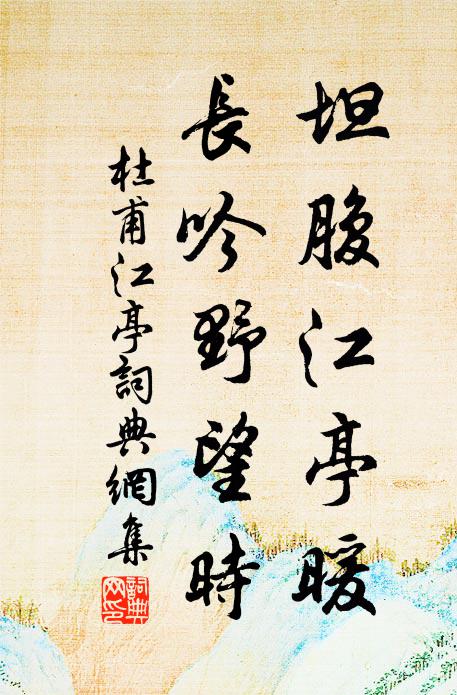 坦腹江亭暖
長吟野望時
杜甫江亭詞典網集
詞典